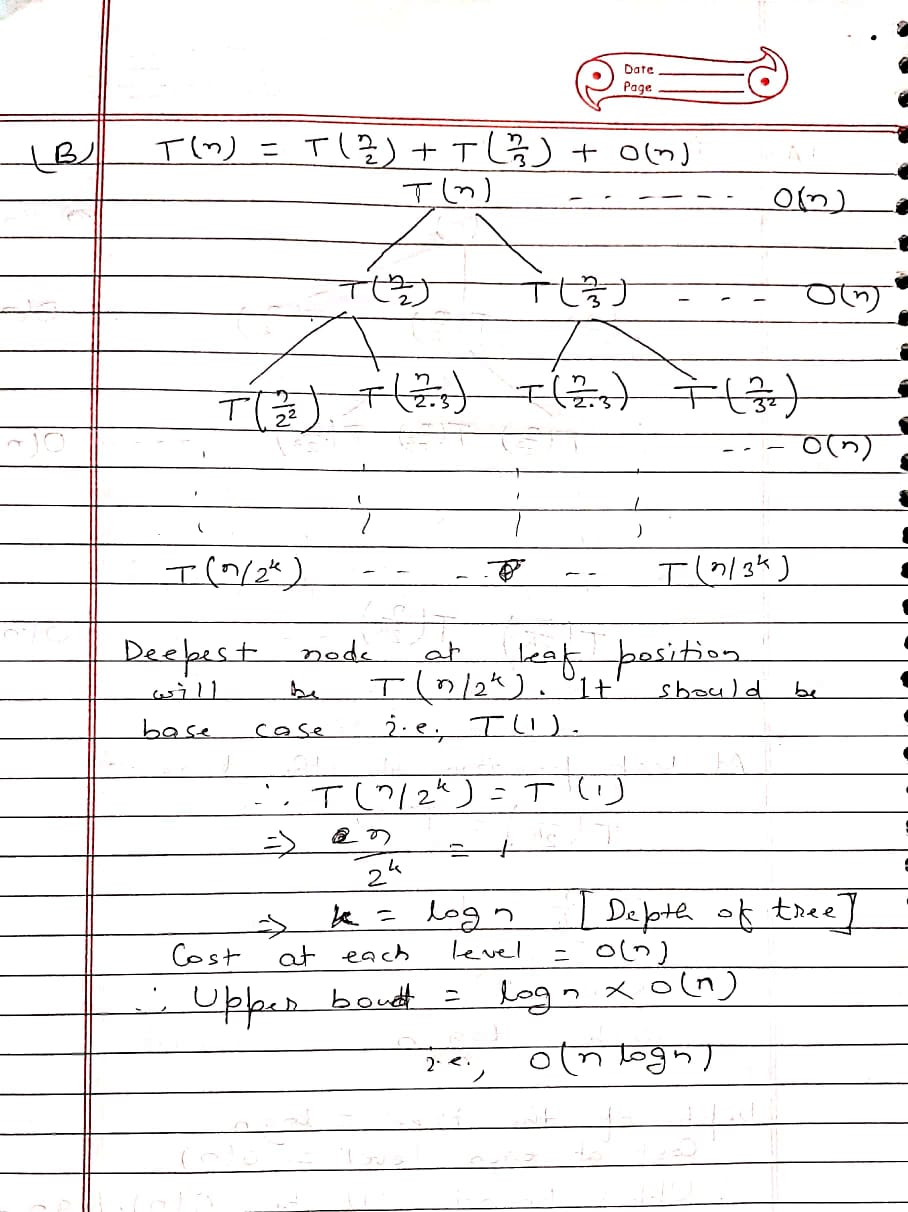 Date
Page
(B) T(n) = T(n/2) + T(n/3) + O(n)
T(n) - - - - - - - O(n)
T(n/2) T(n/3) - - - - O(n)
T(n/2²) T(n/2.3) T(n/2.3) T(n/3²)
- - - - O(n)
T(n/2ᵏ) - - - - - - T(n/3ᵏ)
Deepest node at leaf position
will be T(n/2ᵏ). It should be
base case i.e, T(1).
∴ T(n/2ᵏ) = T(1)
⇒ n/2ᵏ = 1
⇒ k = log n [Depth of tree]
Cost at each level = O(n)
∴ Upper bound = log n × O(n)
i.e., O(n log n)